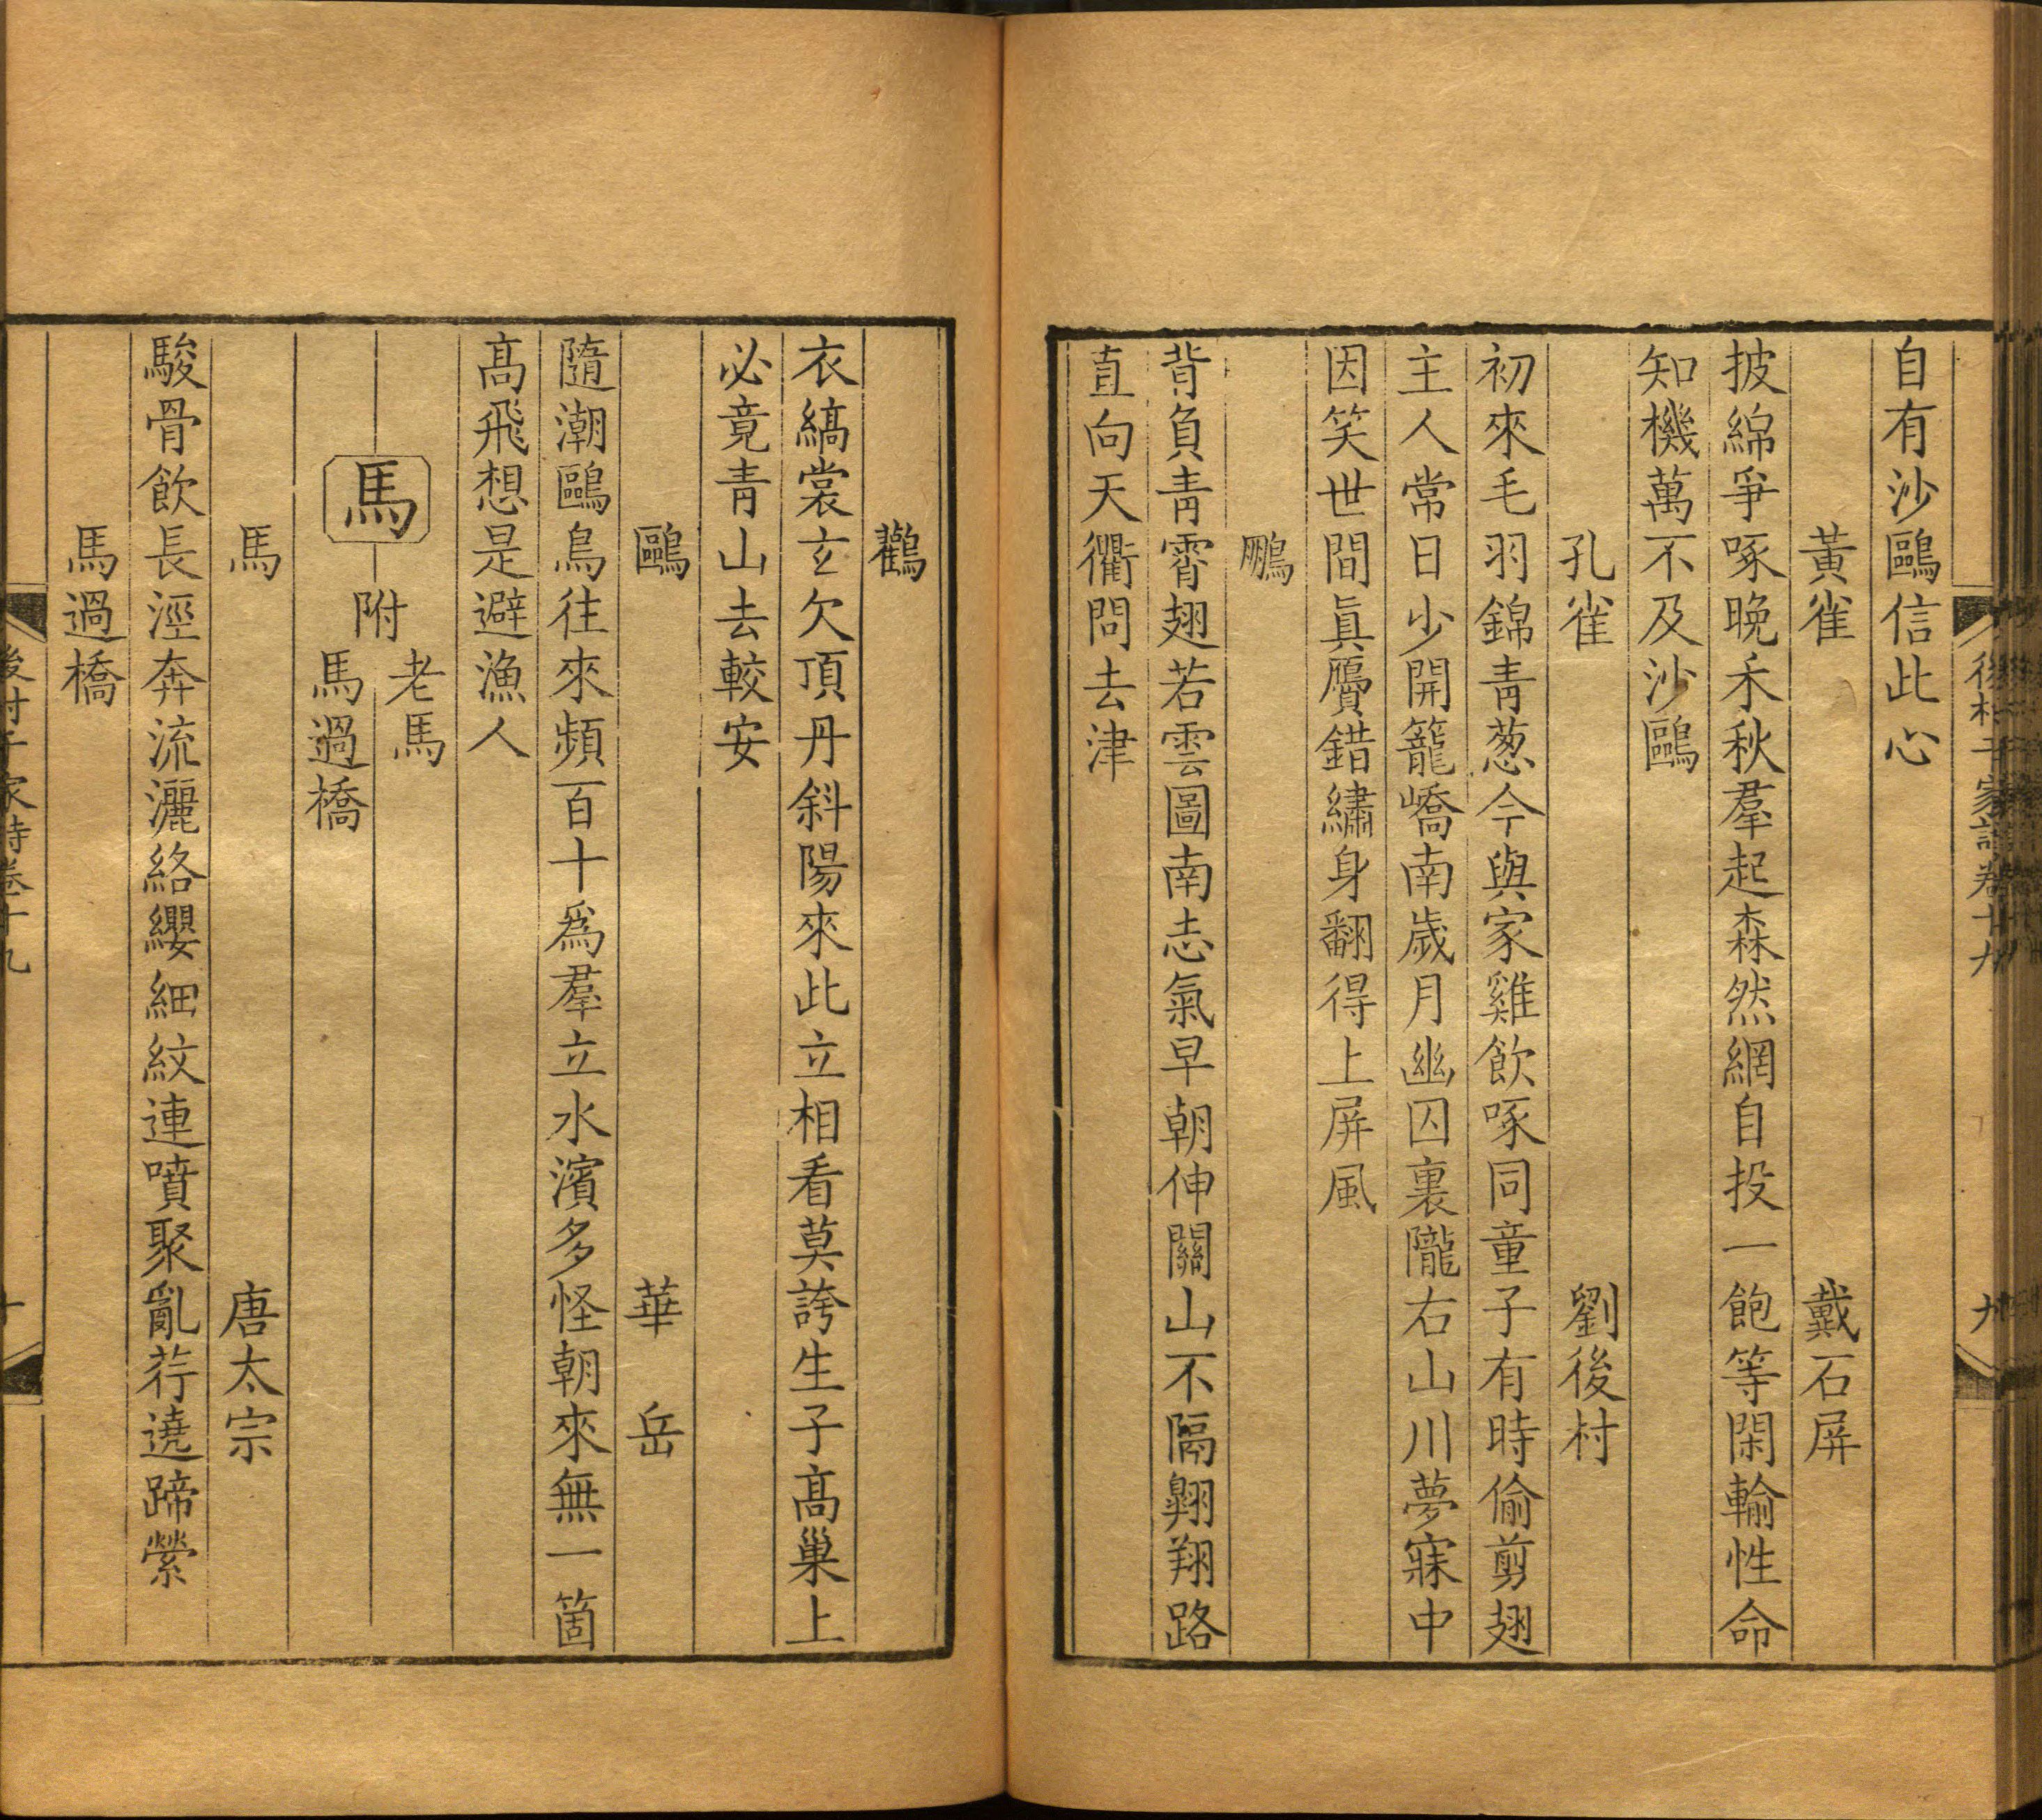 後村千家詩卷十九
九
自有沙鷗信此心
黃雀
戴石屏
披綿爭啄晚禾秋羣起森然網自投一飽等閑輸性命
知機萬不及沙鷗
孔雀
劉後村
初來毛羽錦青葱今與家雞飲啄同童子有時偷剪翅
主人常日少開籠嶠南歲月幽囚裏隴右山川夢寐中
因笑世間真贋錯繡身翻得上屏風
鵬
背負青霄翅若雲圖南志氣早朝伸關山不隔翱翔路
直向天衢問去津
鸛
衣縞裳玄欠頂丹斜陽來此立相看莫誇生子高巢上
必竟青山去較安
鷗
華岳
隨潮鷗鳥往來頻百十爲羣立水濱多怪朝來無一箇
高飛想是避漁人
馬
附
老馬
馬過橋
馬
唐太宗
駿骨飲長涇奔流灑絡纓細紋連噴聚亂荇遶蹄縈
馬過橋
後村千家詩卷十九
十